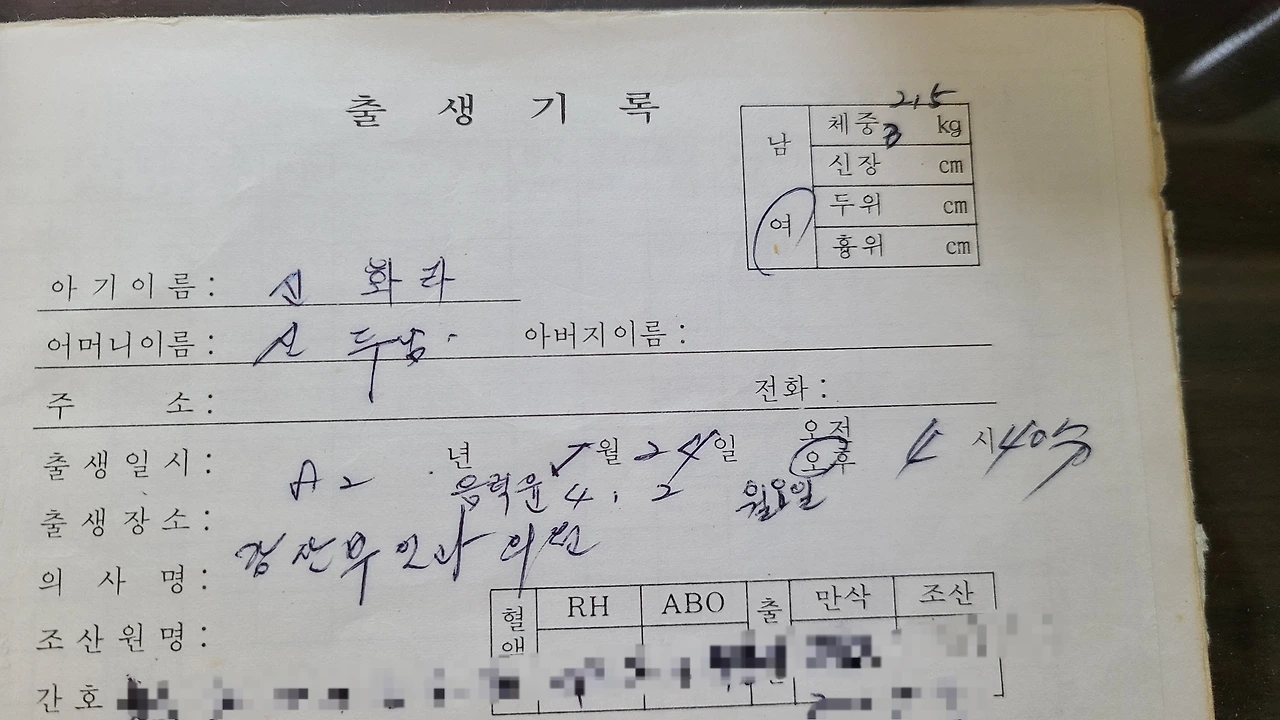 출 생 기 록
2.5
남 체중 3 kg
신장 cm
여 두위 cm
흉위 cm
아 기 이 름 : 신 화 라
어머니이름 : 신 두남. 아버지이름 :
주 소 : 전화 :
출 생 일 시 : 82 년 5월 24일 오전 오후 4 시 40분
음력윤 4. 2 월요일
출 생 장 소 :
산부인과 의원
의 사 명 :
조 산 원 명 :
간 호
혈액 RH ABO 출 만삭 조산